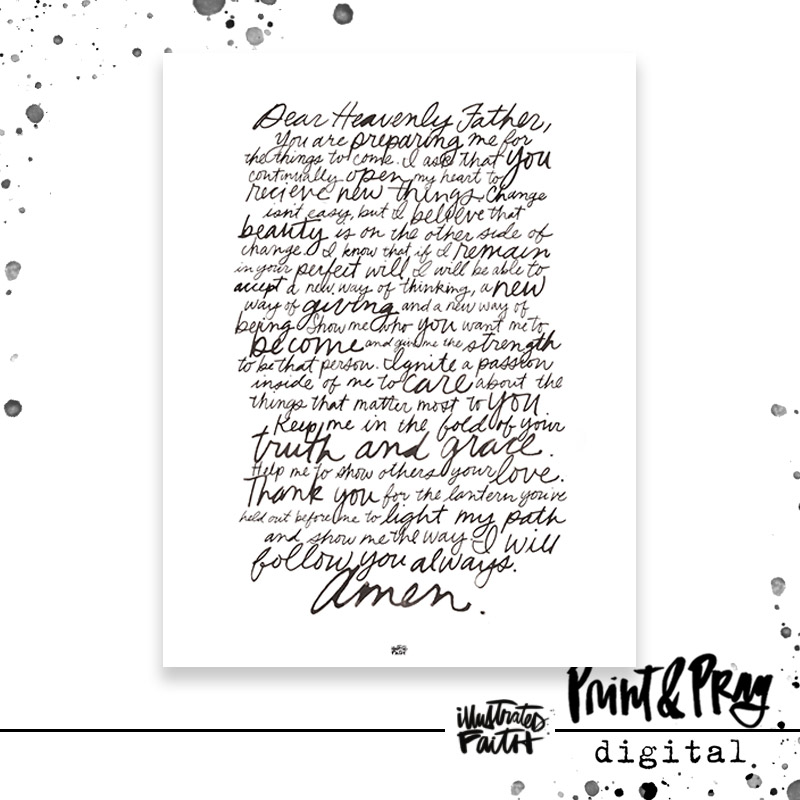 Dear Heavenly Father,
You are preparing me for
the things to come. I ask that you
continually open my heart to
recieve new things. Change
isn't easy, but I believe that
beauty is on the other side of
change. I know that if I remain
in your perfect will I will be able to
accept a new way of thinking, a new
way of giving and a new way of
being. Show me who you want me to
become and give me the strength
to be that person. Ignite a passion
inside of me to care about the
things that matter most to you.
Keep me in the fold of your
truth and grace.
Help me to show others your love.
Thank you for the lantern you've
held out before me to light my path
and show me the way. I will
follow you always.
Amen.
illustrated
FAITH
Print & Pray
illustrated
FAITH
digital